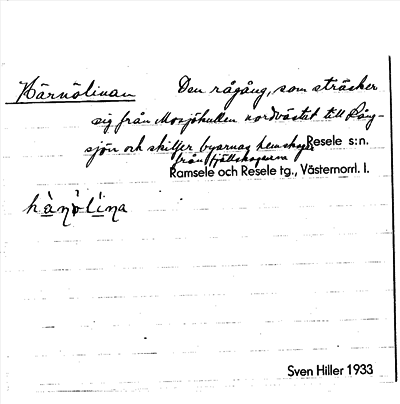 Härnölinan Den rågång, som sträcker
sig från Mosjökullen nordvästut till Rång-
sjön och skiljer byarnas hemskogar Resele s:n.
från fjällskogarna
Ramsele och Resele tg., Västernorrl. l.
hä̀nòlína
Sven Hiller 1933